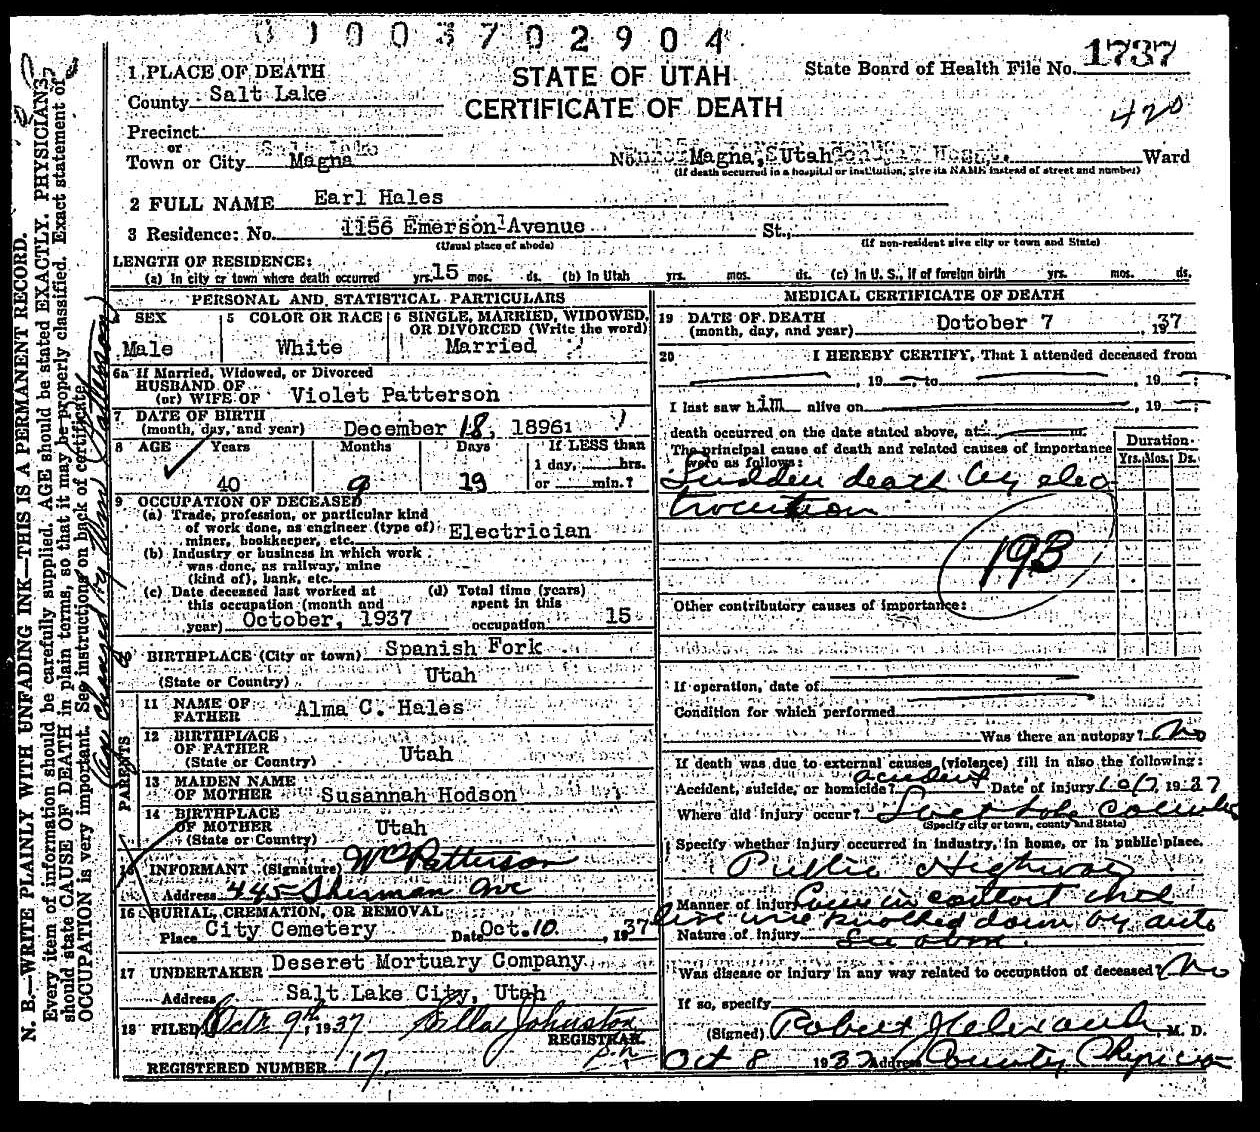 0 1 0 0 3 7 0 2 9 0 4
1 PLACE OF DEATH
STATE OF UTAH
State Board of Health File No. 1737
County Salt Lake
CERTIFICATE OF DEATH
420
Precinct
or
Town or City Magna No. Magna, Utah Ward
(If death occurred in a hospital or institution, give its NAME instead of street and number)
2 FULL NAME Earl Hales
3 Residence: No. 1156 Emerson Avenue St.,
(Usual place of abode) (If non-resident give city or town and State)
LENGTH OF RESIDENCE:
(a) In city or town where death occurred yrs. 15 mos. ds. (b) In Utah yrs. mos. ds. (c) In U. S., if of foreign birth yrs. mos. ds.
PERSONAL AND STATISTICAL PARTICULARS
4 SEX 5 COLOR OR RACE 6 SINGLE, MARRIED, WIDOWED, OR DIVORCED (Write the word)
Male White Married
6a If Married, Widowed, or Divorced
HUSBAND OF
(or) WIFE OF Violet Patterson
7 DATE OF BIRTH
(month, day, and year) December 18, 1896
8 AGE Years Months Days If LESS than
1 day, hrs.
40 9 19 or min.?
9 OCCUPATION OF DECEASED
(a) Trade, profession, or particular kind
of work done, as engineer (type of)
miner, bookkeeper, etc. Electrician
(b) Industry or business in which work
was done, as railway, mine
(kind of), bank, etc.
(c) Date deceased last worked at
this occupation (month and
year) October, 1937
(d) Total time (years)
spent in this
occupation 15
10 BIRTHPLACE (City or town) Spanish Fork
(State or Country) Utah
PARENTS
11 NAME OF
FATHER Alma C. Hales
12 BIRTHPLACE
OF FATHER
(State or Country) Utah
13 MAIDEN NAME
OF MOTHER Susannah Hodson
14 BIRTHPLACE
OF MOTHER
(State or Country) Utah
15 INFORMANT (Signature) Wm Patterson
Address 445 Sherman Ave
16 BURIAL, CREMATION, OR REMOVAL
Place City Cemetery Date Oct. 10, 1937
17 UNDERTAKER Deseret Mortuary Company
Address Salt Lake City, Utah
18 FILED Oct. 9th, 1937 Johnston
REGISTRAR.
REGISTERED NUMBER 17
MEDICAL CERTIFICATE OF DEATH
19 DATE OF DEATH
(month, day, and year) October 7, 1937
20 I HEREBY CERTIFY, That I attended deceased from
, 19 , to , 19 ;
I last saw him alive on , 19 ;
death occurred on the date stated above, at m.
The principal cause of death and related causes of importance
were as follows:
Duration
Yrs. Mos. Ds.
Sudden death by elec
trocution
193
Other contributory causes of importance:
If operation, date of
Condition for which performed
Was there an autopsy? No
If death was due to external causes (violence) fill in also the following:
Accident, suicide, or homicide? accident Date of injury 10/7 1937
Where did injury occur? Salt Lake County
(Specify city or town, county and State)
Specify whether injury occurred in industry, in home, or in public place.
Public Highway
Manner of Injury Came in contact with
live wire knocked down by auto
Nature of Injury See above.
Was disease or injury in any way related to occupation of deceased? No
If so, specify
(Signed) Robert M. D.
Oct 8 1937 Address County Physician
N. B.—WRITE PLAINLY WITH UNFADING INK—THIS IS A PERMANENT RECORD.
Every item of information should be carefully supplied. AGE should be stated EXACTLY. PHYSICIANS
should state CAUSE OF DEATH in plain terms, so that it may be properly classified. Exact statement of
OCCUPATION is very important. See instructions on back of certificate.
changed by Wm Patterson